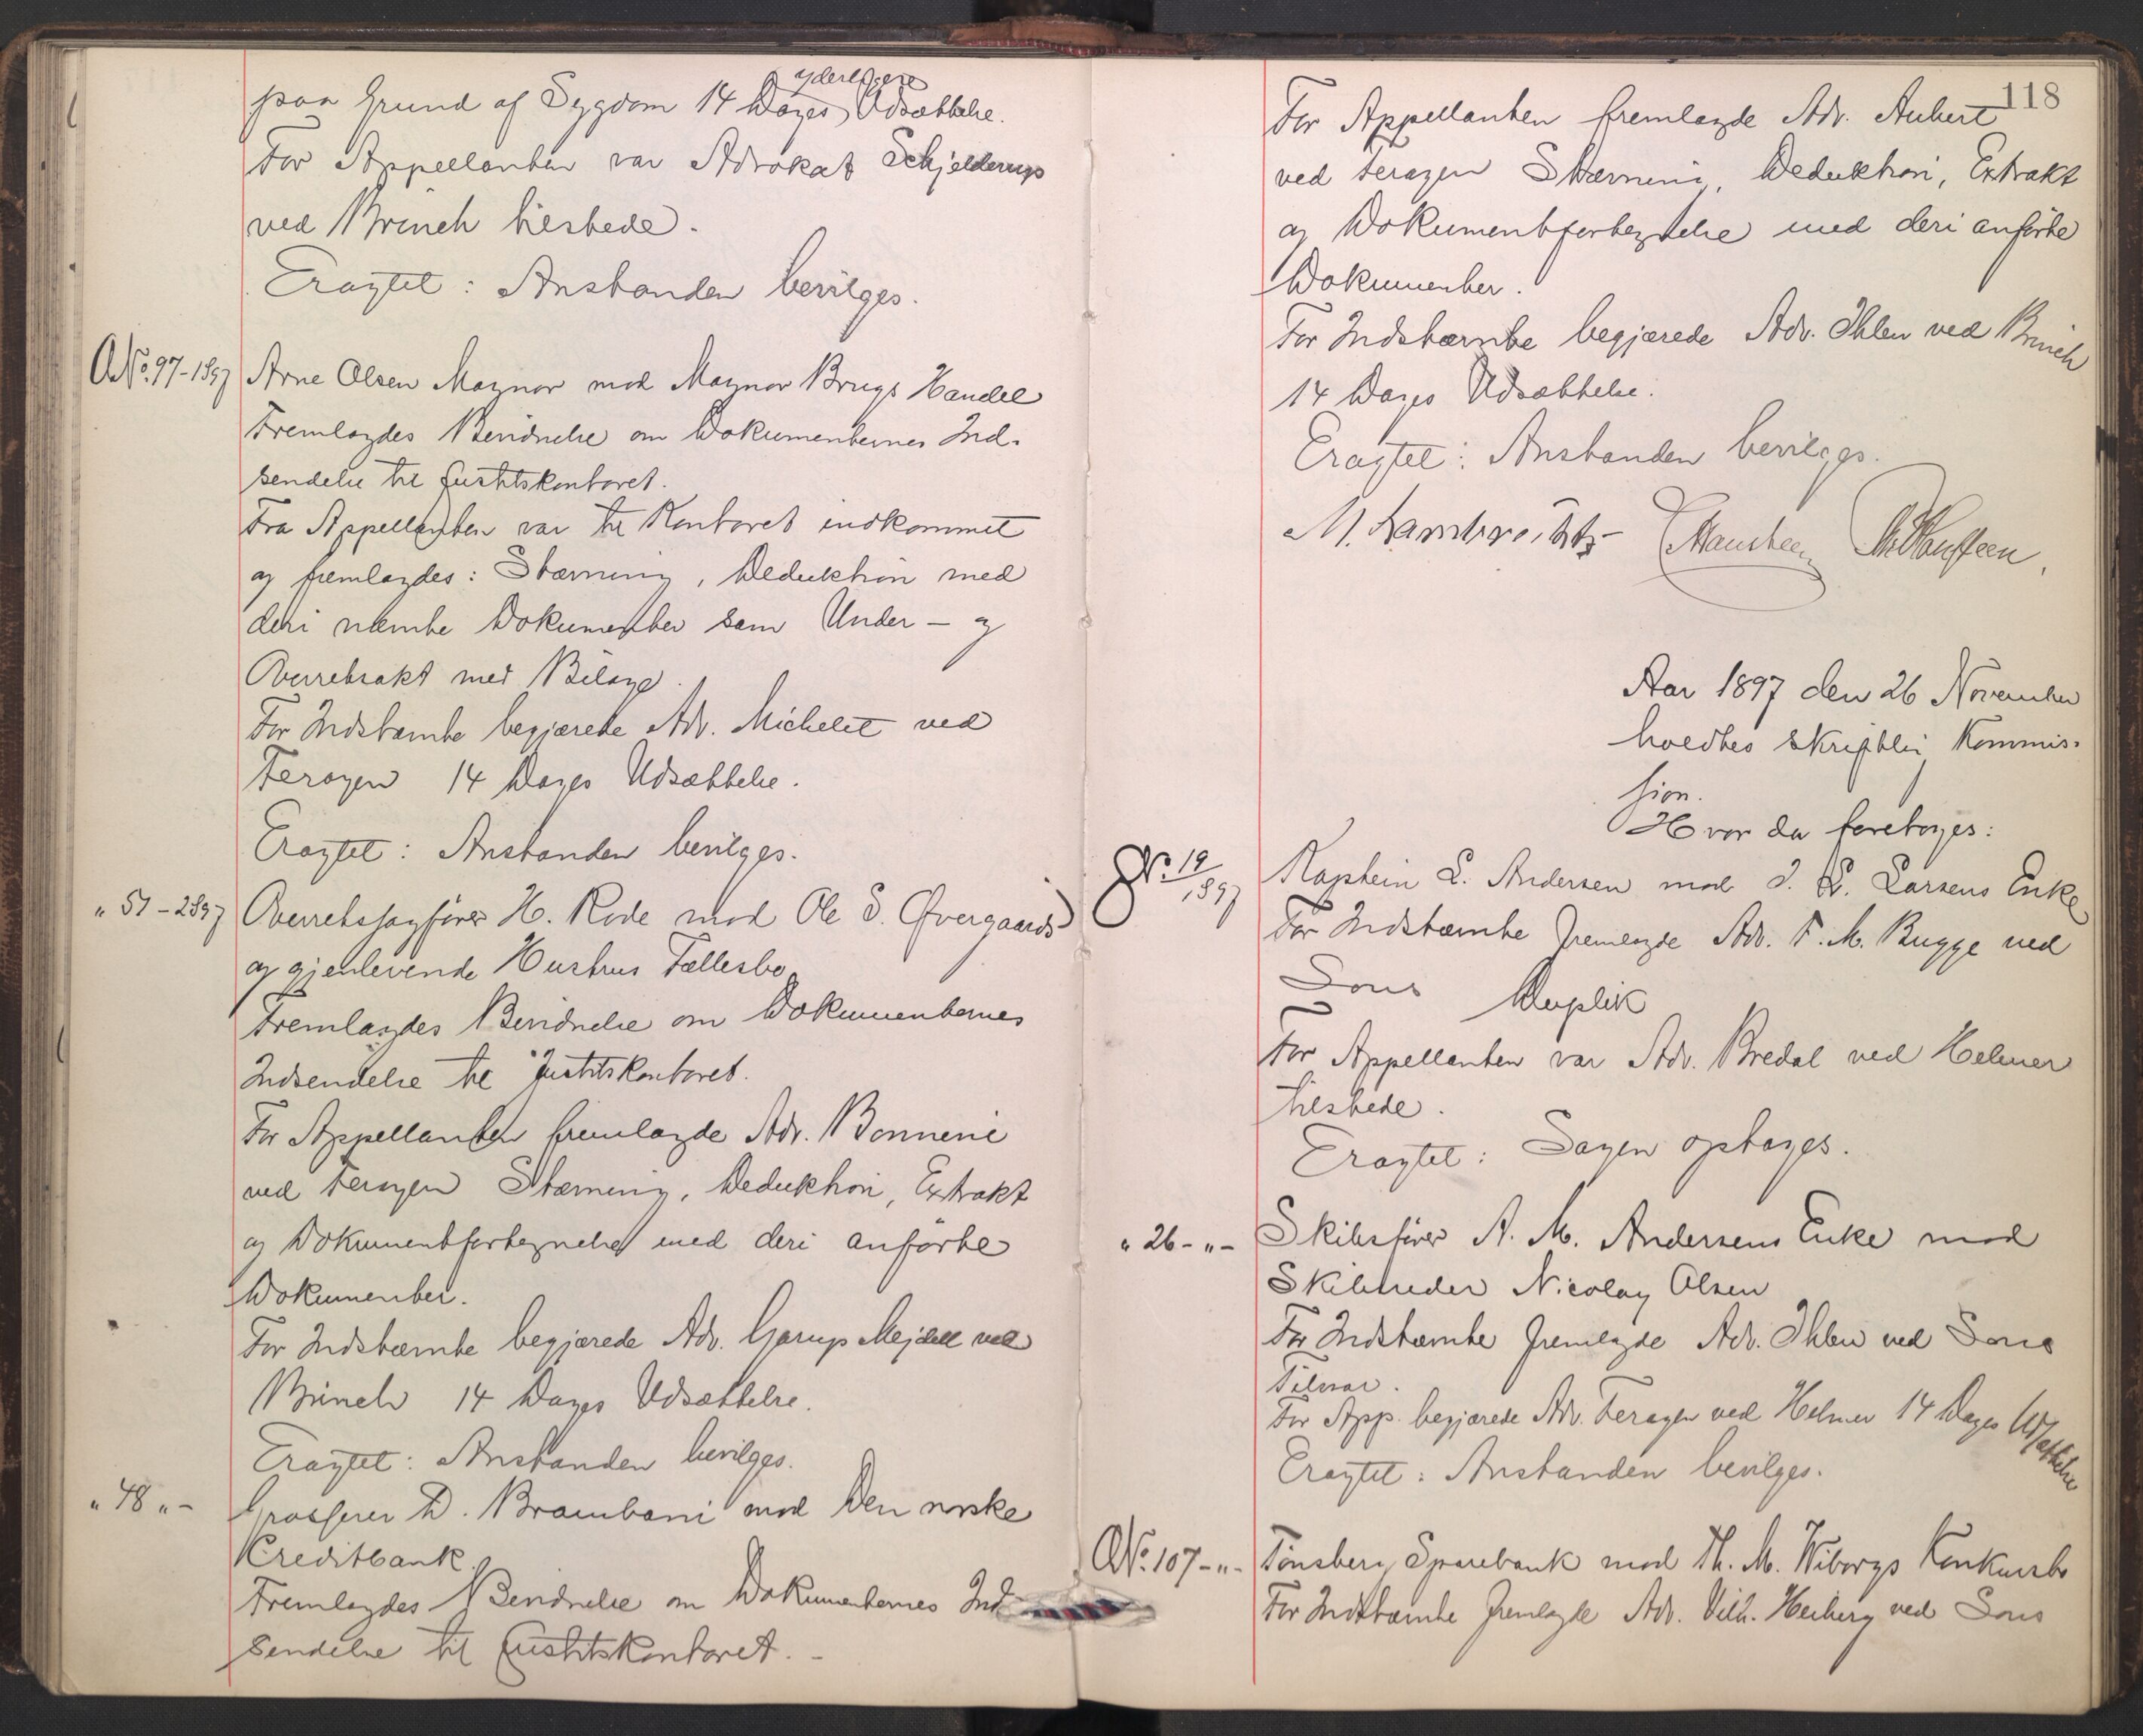 paa Grund af Sygdom 14 Dages yderligere Udsættelse.
For Appellanten var Advokat Schjelderup
ved Brinch tilstede.
Eragtet: Anstanden bevilges.
No. 97-1897 Arne Olsen Magnor mod Magnor Brugs Handel
Fremlagdes Bevidnelse om Dokumenternes Ind-
sendelse til Justitskontoret.
Fra Appellanten var til Kontoret indkommet
og fremlagdes: Stævning, Deduktion med
deri nævnte Dokumenter som Under- og
Overretsakt med Bilage.
For Indstævnte begjærede Adv. Michelet ved
Feragen 14 Dages Udsættelse.
Eragtet: Anstanden bevilges.
" 51-1897 Overretssagfører H. Rode mod Ole S. Øvergaards
og gjenlevende Hustrus Fællesbo
Fremlagdes Bevidnelse om Dokumenternes
Indsendelse til Justitskontoret.
For Appellanten fremlagde Adv. Bonnevie
ved Feragen Stævning, Deduktion, Extrakt
og Dokumentfortegnelse med deri anførte
Dokumenter.
For Indstævnte begjærede Adv. Gørup Mejdell ved
Brinch 14 Dages Udsættelse.
Eragtet: Anstanden bevilges.
" 48 " - Grosserer D. Brambani mod Den norske
Creditbank.
Fremlagdes Bevidnelse om Dokumenternes Ind
sendelse til Justitskontoret. -
118
For Appellanten fremlagde Adv. Aubert
ved Feragen Stævning, Deduktion, Extrakt
og Dokumentfortegnelse med deri anførte
Dokumenter.
For Indstævnte begjærede Adv. Ihlen ved Brinch
14 Dages Udsættelse.
Eragtet: Anstanden bevilges.
M. Lambrechts
Aar 1897 den 26 November
holdtes skriftlig Kommis-
sion.
Hvor da foretoges:
No. 19/1897 Kaptein L. Andersen mod J. L. Larsens Enke
For Indstævnte fremlagde Adv. F. M. Bugge ved
Sons Duplik
For Appellanten var Adv. Bredal ved Helmer
tilstede.
Eragtet: Sagen optages.
" 26 - " - Skibsfører A. M. Andersens Enke mod
Skibsreder Nicolay Olsen
For Indstævnte fremlagde Adv. Ihlen ved Sons
Tilsvar.
For App. begjærede Adv. Feragen ved Helmer 14 Dages Udsættelse
Eragtet: Anstanden bevilges.
No. 107 - " - Tønsberg Sparebank mod Th. M. Wiborgs Konkursbo
For Indstævnte fremlagde Adv. Vilh. Heiberg ved Sons